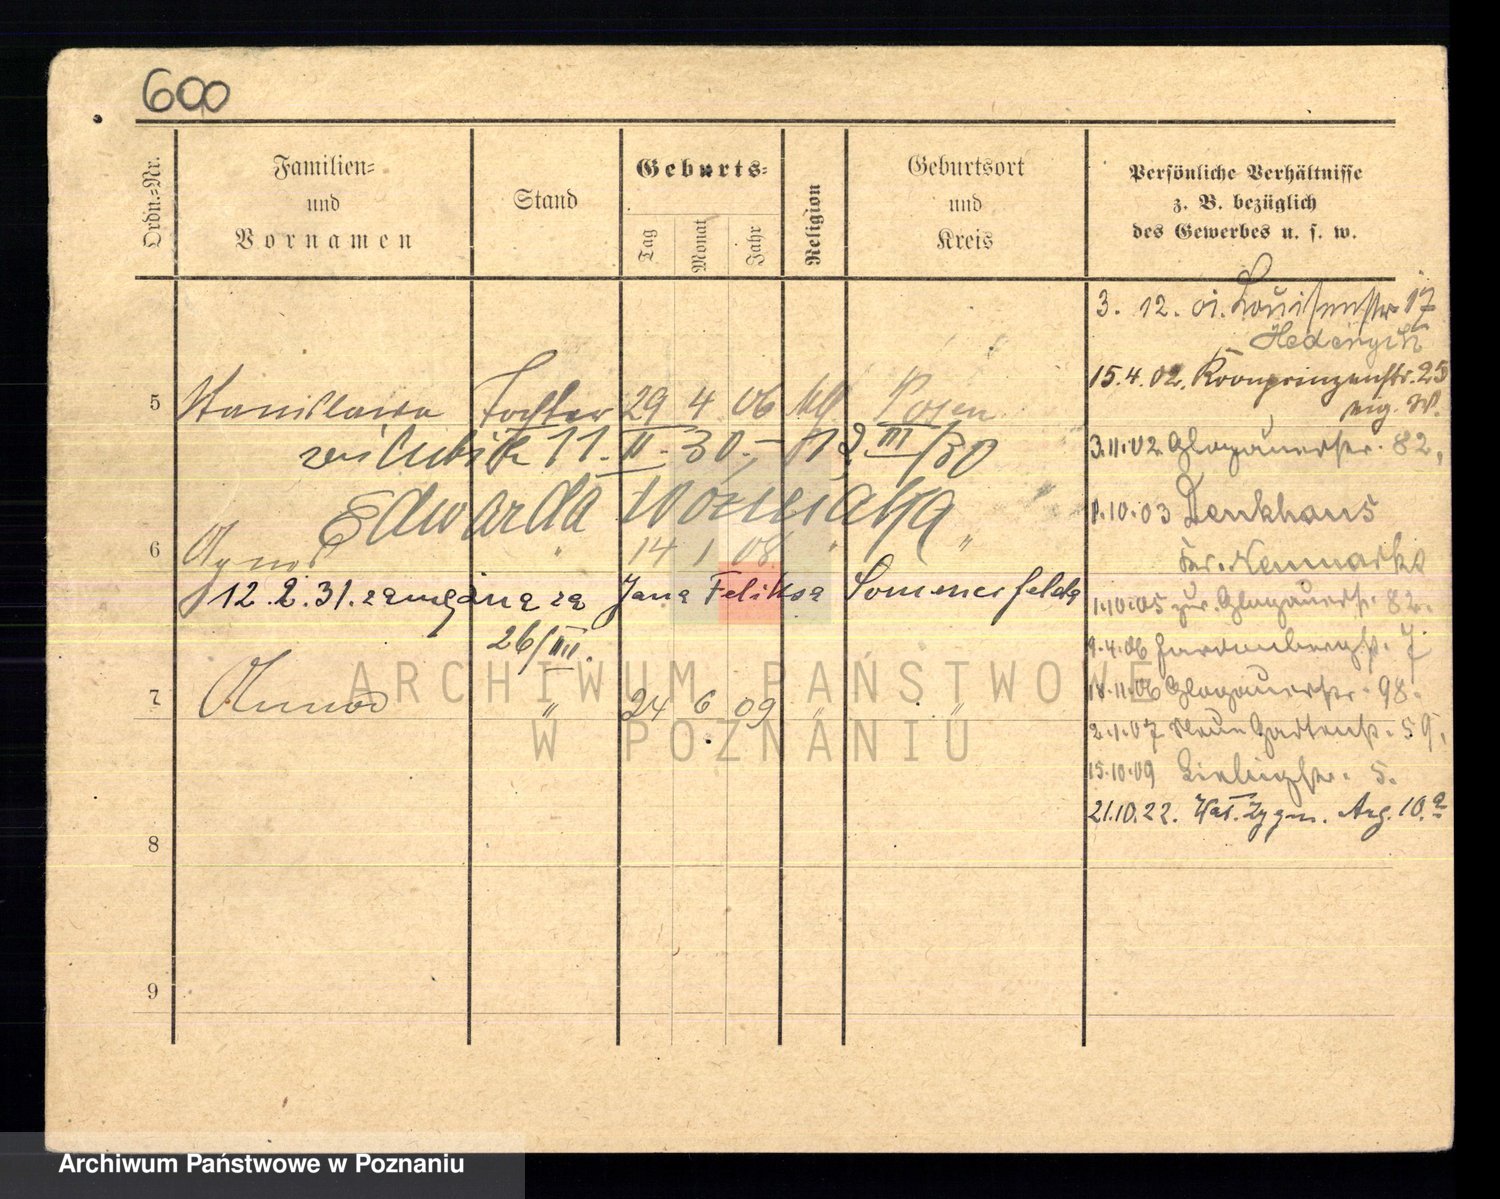 600
Ordn.-Nr.
Familien-
und
Vornamen
Stand
Geburts-
Tag
Monat
Jahr
Religion
Geburtsort
und
Kreis
Persönliche Verhältnisse
z. B. bezüglich
des Gewerbes u. s. w.
3. 12. 01. Louisenstr. 17
15.4.02. Kronprinzenstr. 25
5 Stanislawa Tochter 29 4 06 Posen
11. II. 30. – 12 III/30
3.11.02 Glogauerstr. 82,
Edwarda Woźniaka
1.10.03 Denkhaus
Kr. Neumarkt
6 Agnes " 14 1 08 " "
12.2.31. zamężna za Jana Feliksa Sommerfelda
1.10.05 zur. Glogauerstr. 82.
26/III.
9.4.06 Hardenbergstr. 7
7 Anna " 24 6 09 " "
18.11.06 Glogauerstr. 98.
2.1.07 Neue Gartenstr. 59,
15.10.09 5.
21.10.22. Wat. Zygm. Aug. 10.a
8
9
ARCHIWUM PAŃSTWOWE
W POZNANIU
Archiwum Państwowe w Poznaniu